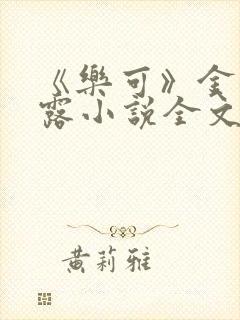 《樂可》金
露小説全文
黄莉雅